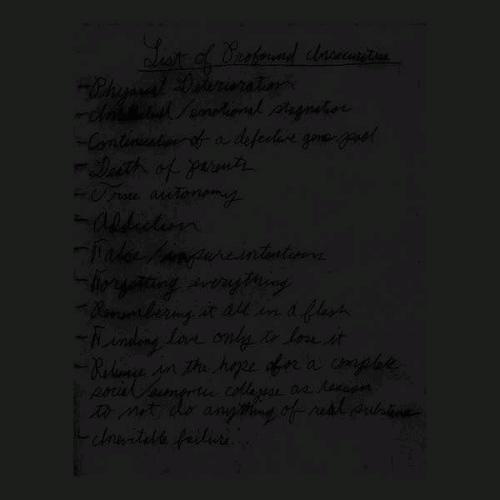 List of Profound Insecurities
- Physical Deterioration
- Intellectual/emotional stagnation
- Continuation of a defective gene pool
- Death of parents
- True autonomy
- Addiction
- False/impure intentions
- Forgetting everything
- Remembering it all in a flash
- Finding love only to lose it
- Reliance in the hope of/for a complete
social/economic collapse as reason
to not do anything of real substance
- Inevitable failure...